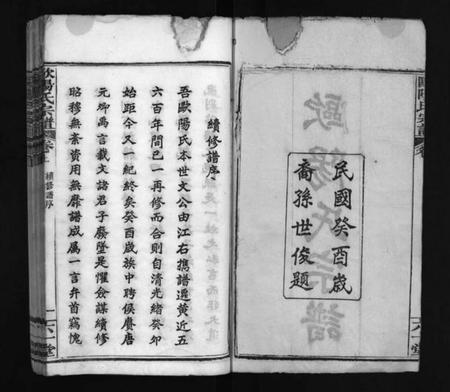 歐陽氏宗譜
民國癸酉歲
裔孫世俊題
續修譜序
吾歐陽氏本世文公由江右攜譜遷黃近五
六百年間已一再修而合則自清光緒癸卯
始距今又一紀終矣癸酉歲族中聘侯賡唐
元卿禹言載文諸君子廢墜是懼僉謀續修
昭穆無紊資用無靡譜成屬一言弁首竊愧
歐陽氏宗譜
續修譜序
六一堂